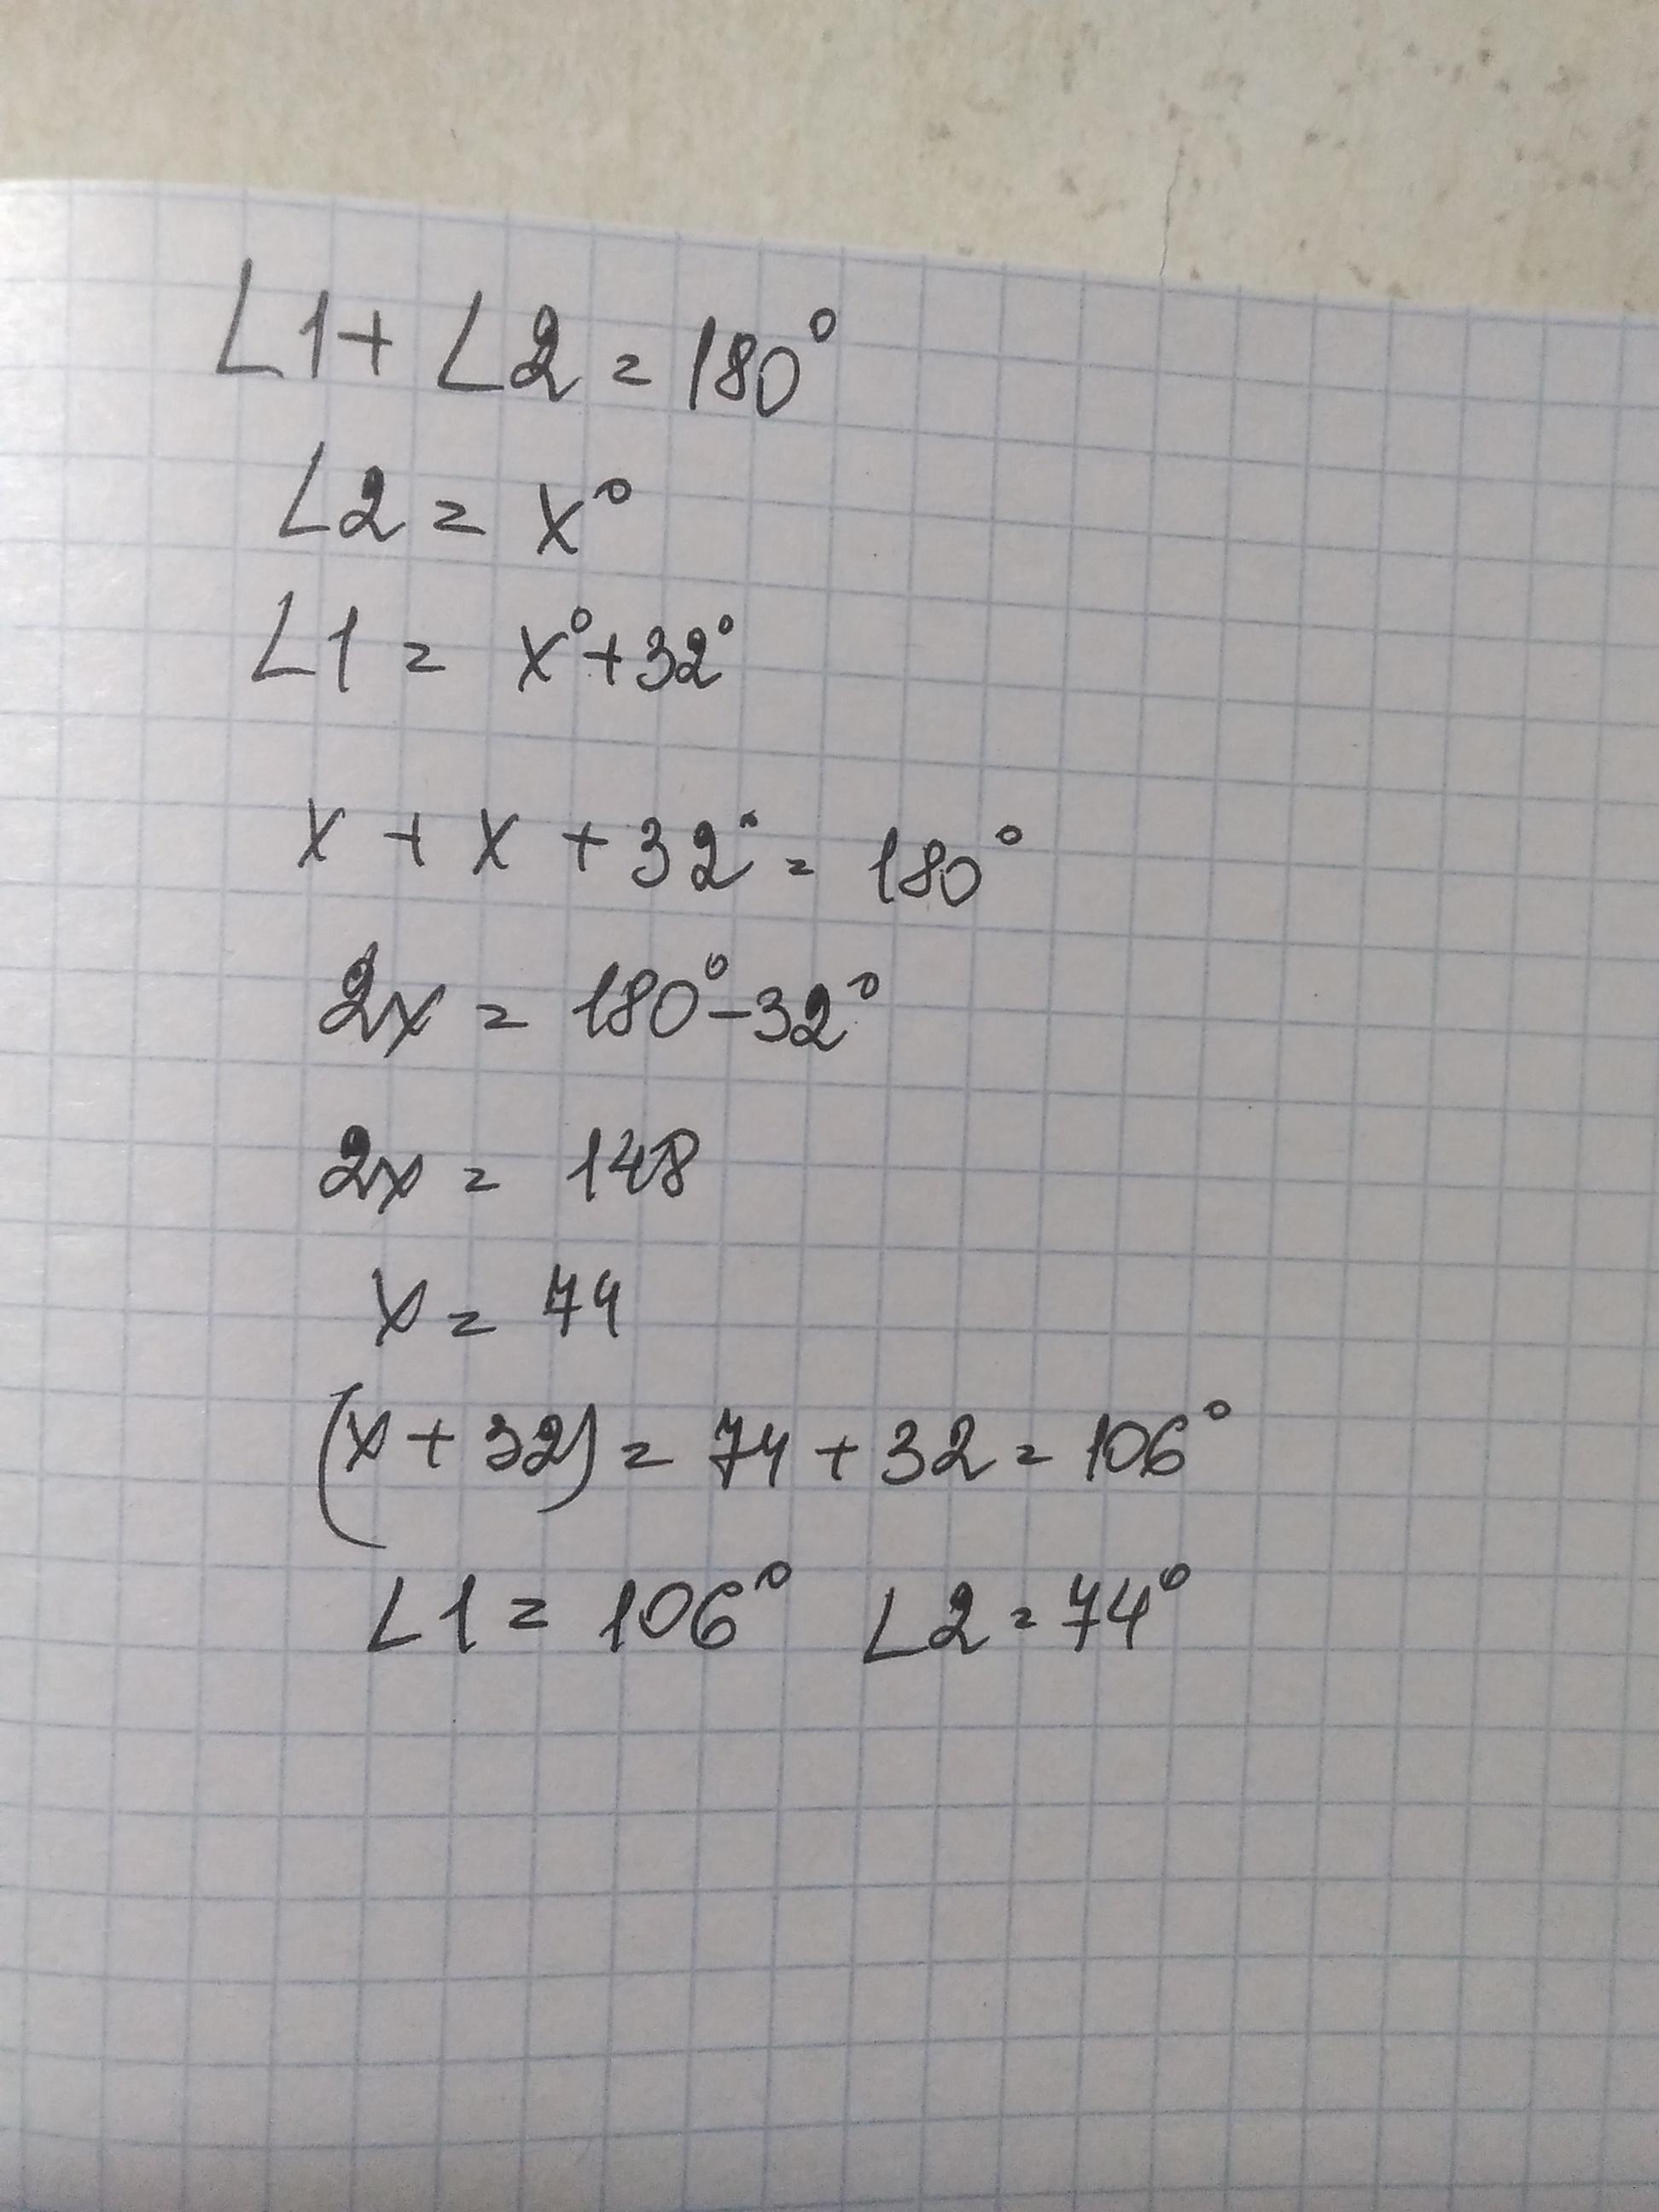 ∠1+ ∠2 = 180°
∠2 = x°
∠1 = x°+32°
x + x + 32° = 180°
2x = 180°-32°
2x = 148
x = 74
(x + 32) = 74 + 32 = 106°
∠1 = 106° ∠2 = 74°